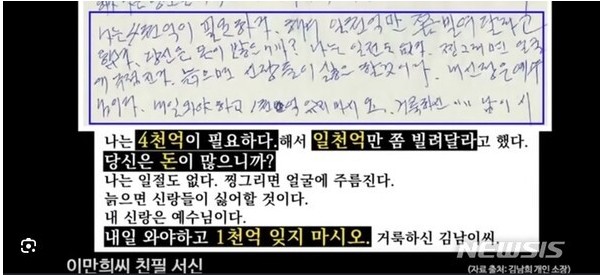 나는 4천억이 필요하다. 해서 일천억만 쫌 빌려달라고
했다. 당신은 돈이 많으니까? 나는 일전도 없다. 찡그리면 얼굴
에 주름진다. 늙으면 신랑들이 싫어 할것이다. 내 신랑은 예수
님이다. 내일 와야 하고 1천억 잊지 마시오. 거룩하신 남이 씨
나는 4천억이 필요하다. 해서 일천억만 쫌 빌려달라고 했다.
당신은 돈이 많으니까?
나는 일절도 없다. 찡그리면 얼굴에 주름진다.
늙으면 신랑들이 싫어할 것이다.
내 신랑은 예수님이다.
내일 와야하고 1천억 잊지 마시오. 거룩하신 김남이씨
NEWSIS
이만희씨 친필 서신
(자료 출처: 김남희 개인 소장)